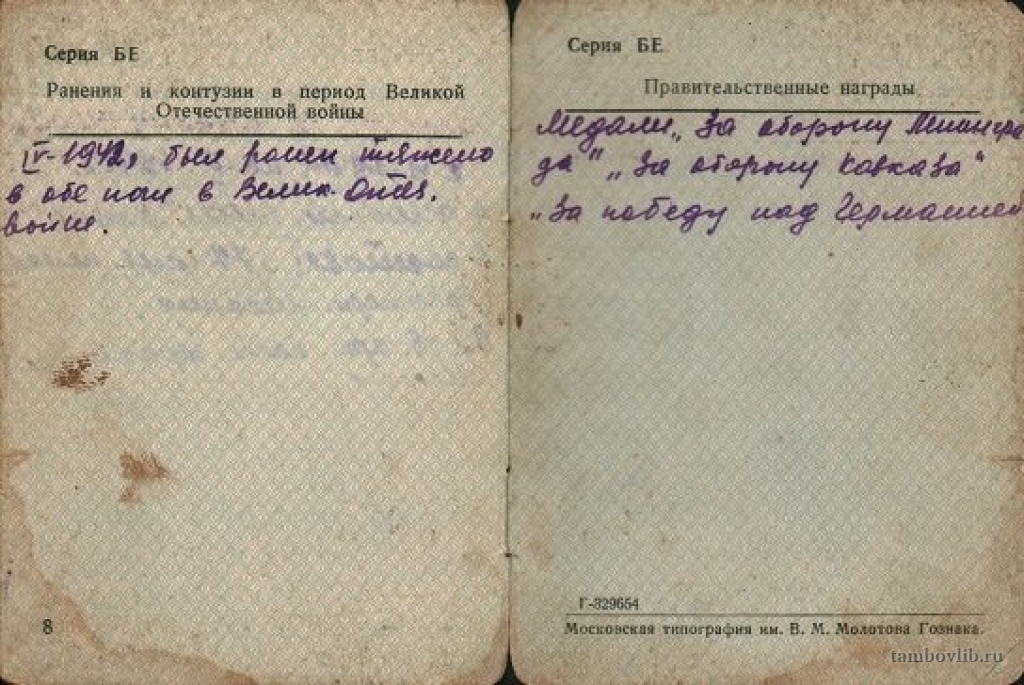 Серия БЕ
Ранения и контузии в период Великой
Отечественной войны
IV-1942, был ранен тяжело
в обе ноги в Велик. Отеч.
войне.
8
Серия БЕ
Правительственные награды
Медали „За оборону Ленингра
да" „За оборону Кавказа"
„За победу над Германией
Г-329654
Московская типография им. В. М. Молотова Гознака.
tambovlib.ru